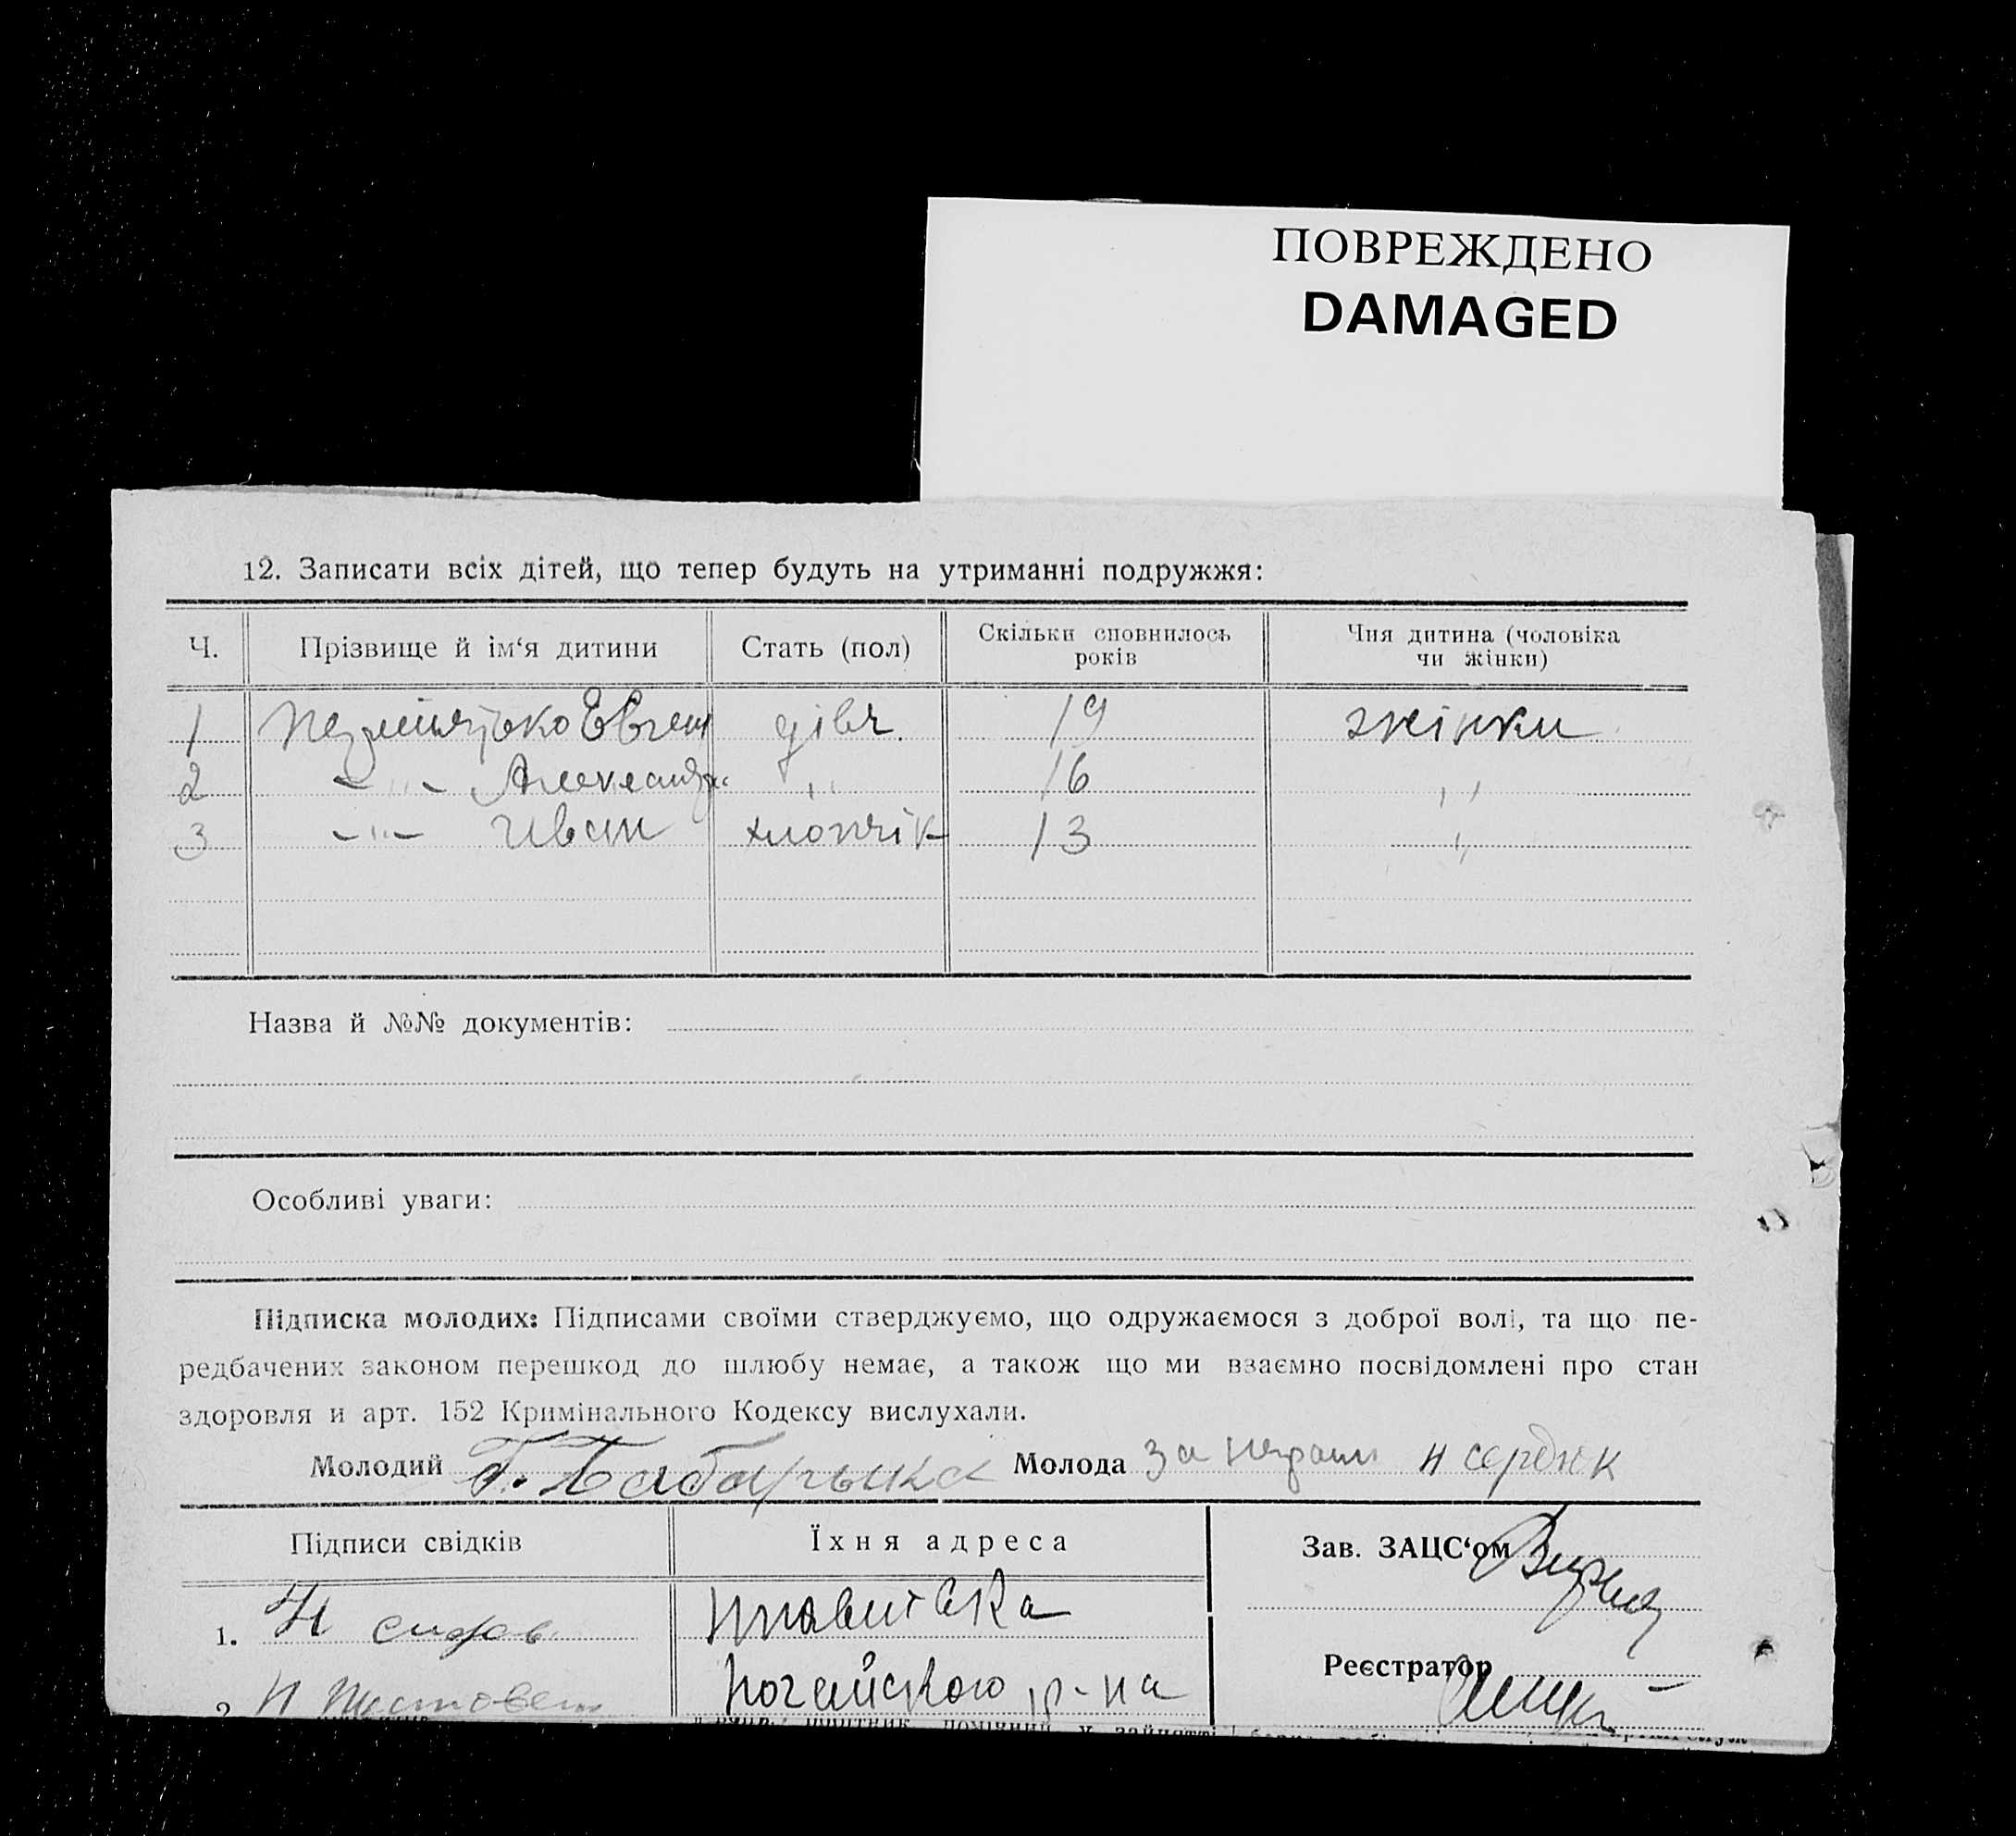 ПОВРЕЖДЕНО
DAMAGED
12. Записати всіх дітей, що тепер будуть на утриманні подружжя:
Ч. Прізвище й ім‘я дитини Стать (пол) Скільки сповнилось років Чия дитина (чоловіка чи жінки)
1 Евген дівч. 19 жінки
2 – " – Александра " 16 "
3 – " – Иван хлопчік 13 "
Назва й №№ документів:
Особливі уваги:
Підписка молодих: Підписами своїми стверджуємо, що одружаємося з доброї волі, та що пе-
редбачених законом перешкод до шлюбу немає, а також що ми взаємно посвідомлені про стан
здоровля и арт. 152 Кримінального Кодексу вислухали.
Молодий Молода за неграм Н сердюк
Підписи свідків Їхня адреса Зав. ЗАЦС‘ом
1. Н
Реєстратор
2. Н ногайского р-на